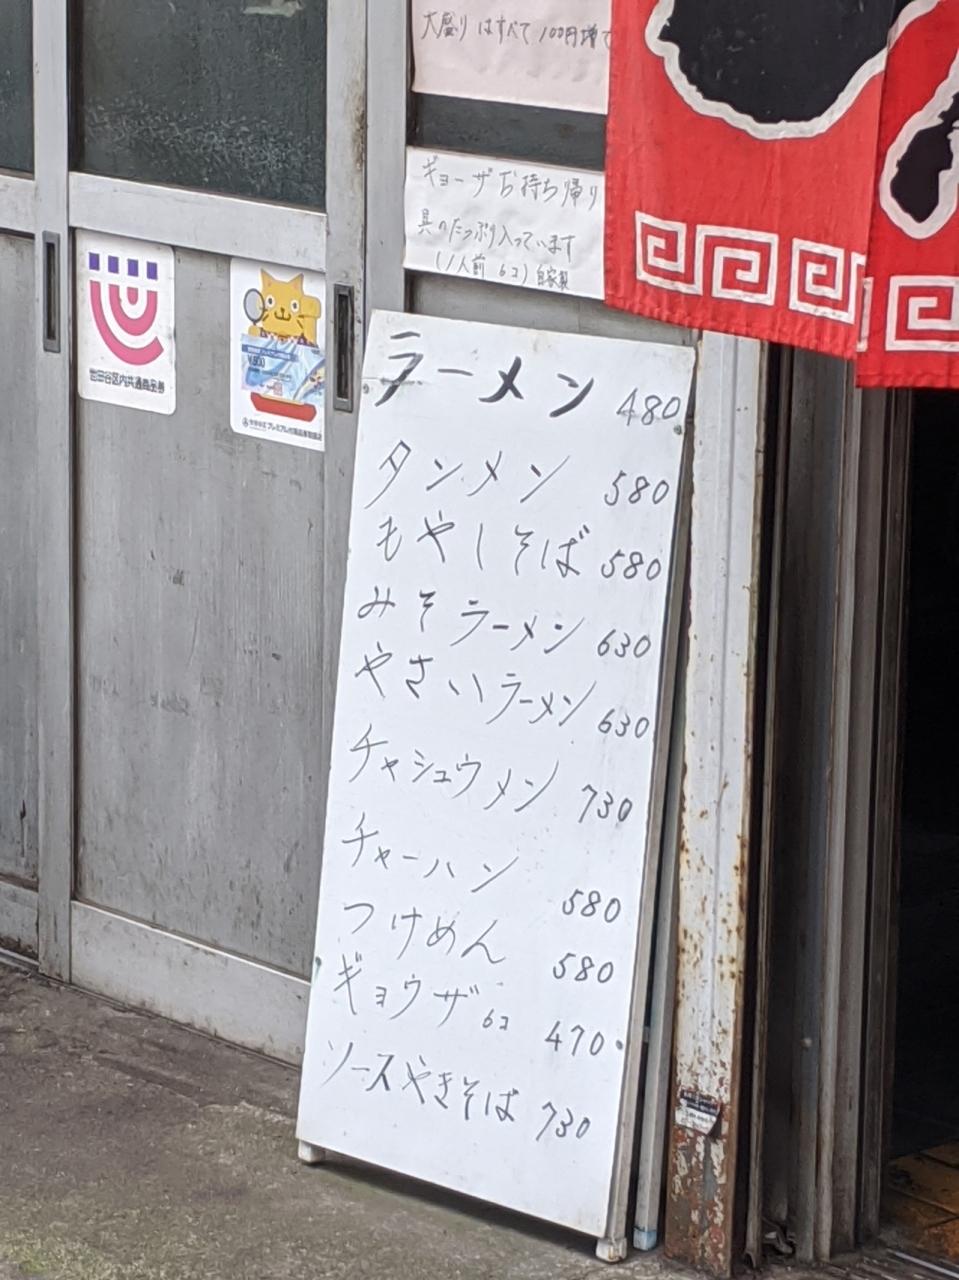 大盛りはすべて100円増で
ギョーザお持ち帰り
具のたっぷり入っています
(1人前 6コ) 自家製
世田谷区内共通商品券
¥500
ラーメン 480
タンメン 580
もやしそば 580
みそラーメン 630
やさいラーメン 630
チャシュウメン 730
チャーハン 580
つけめん 580
ギョウザ 6コ 470
ソースやきそば 730